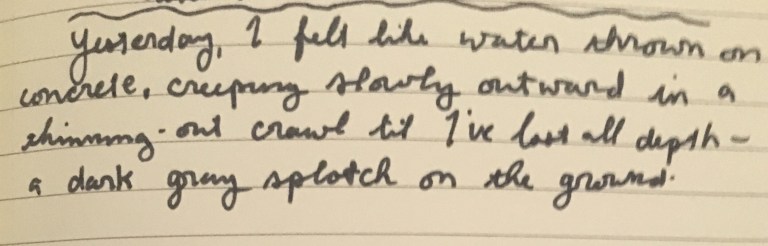 Yesterday, I felt like water thrown on
concrete, creeping slowly outward in a
thinning-out crawl til I've lost all depth -
a dark gray splotch on the ground.